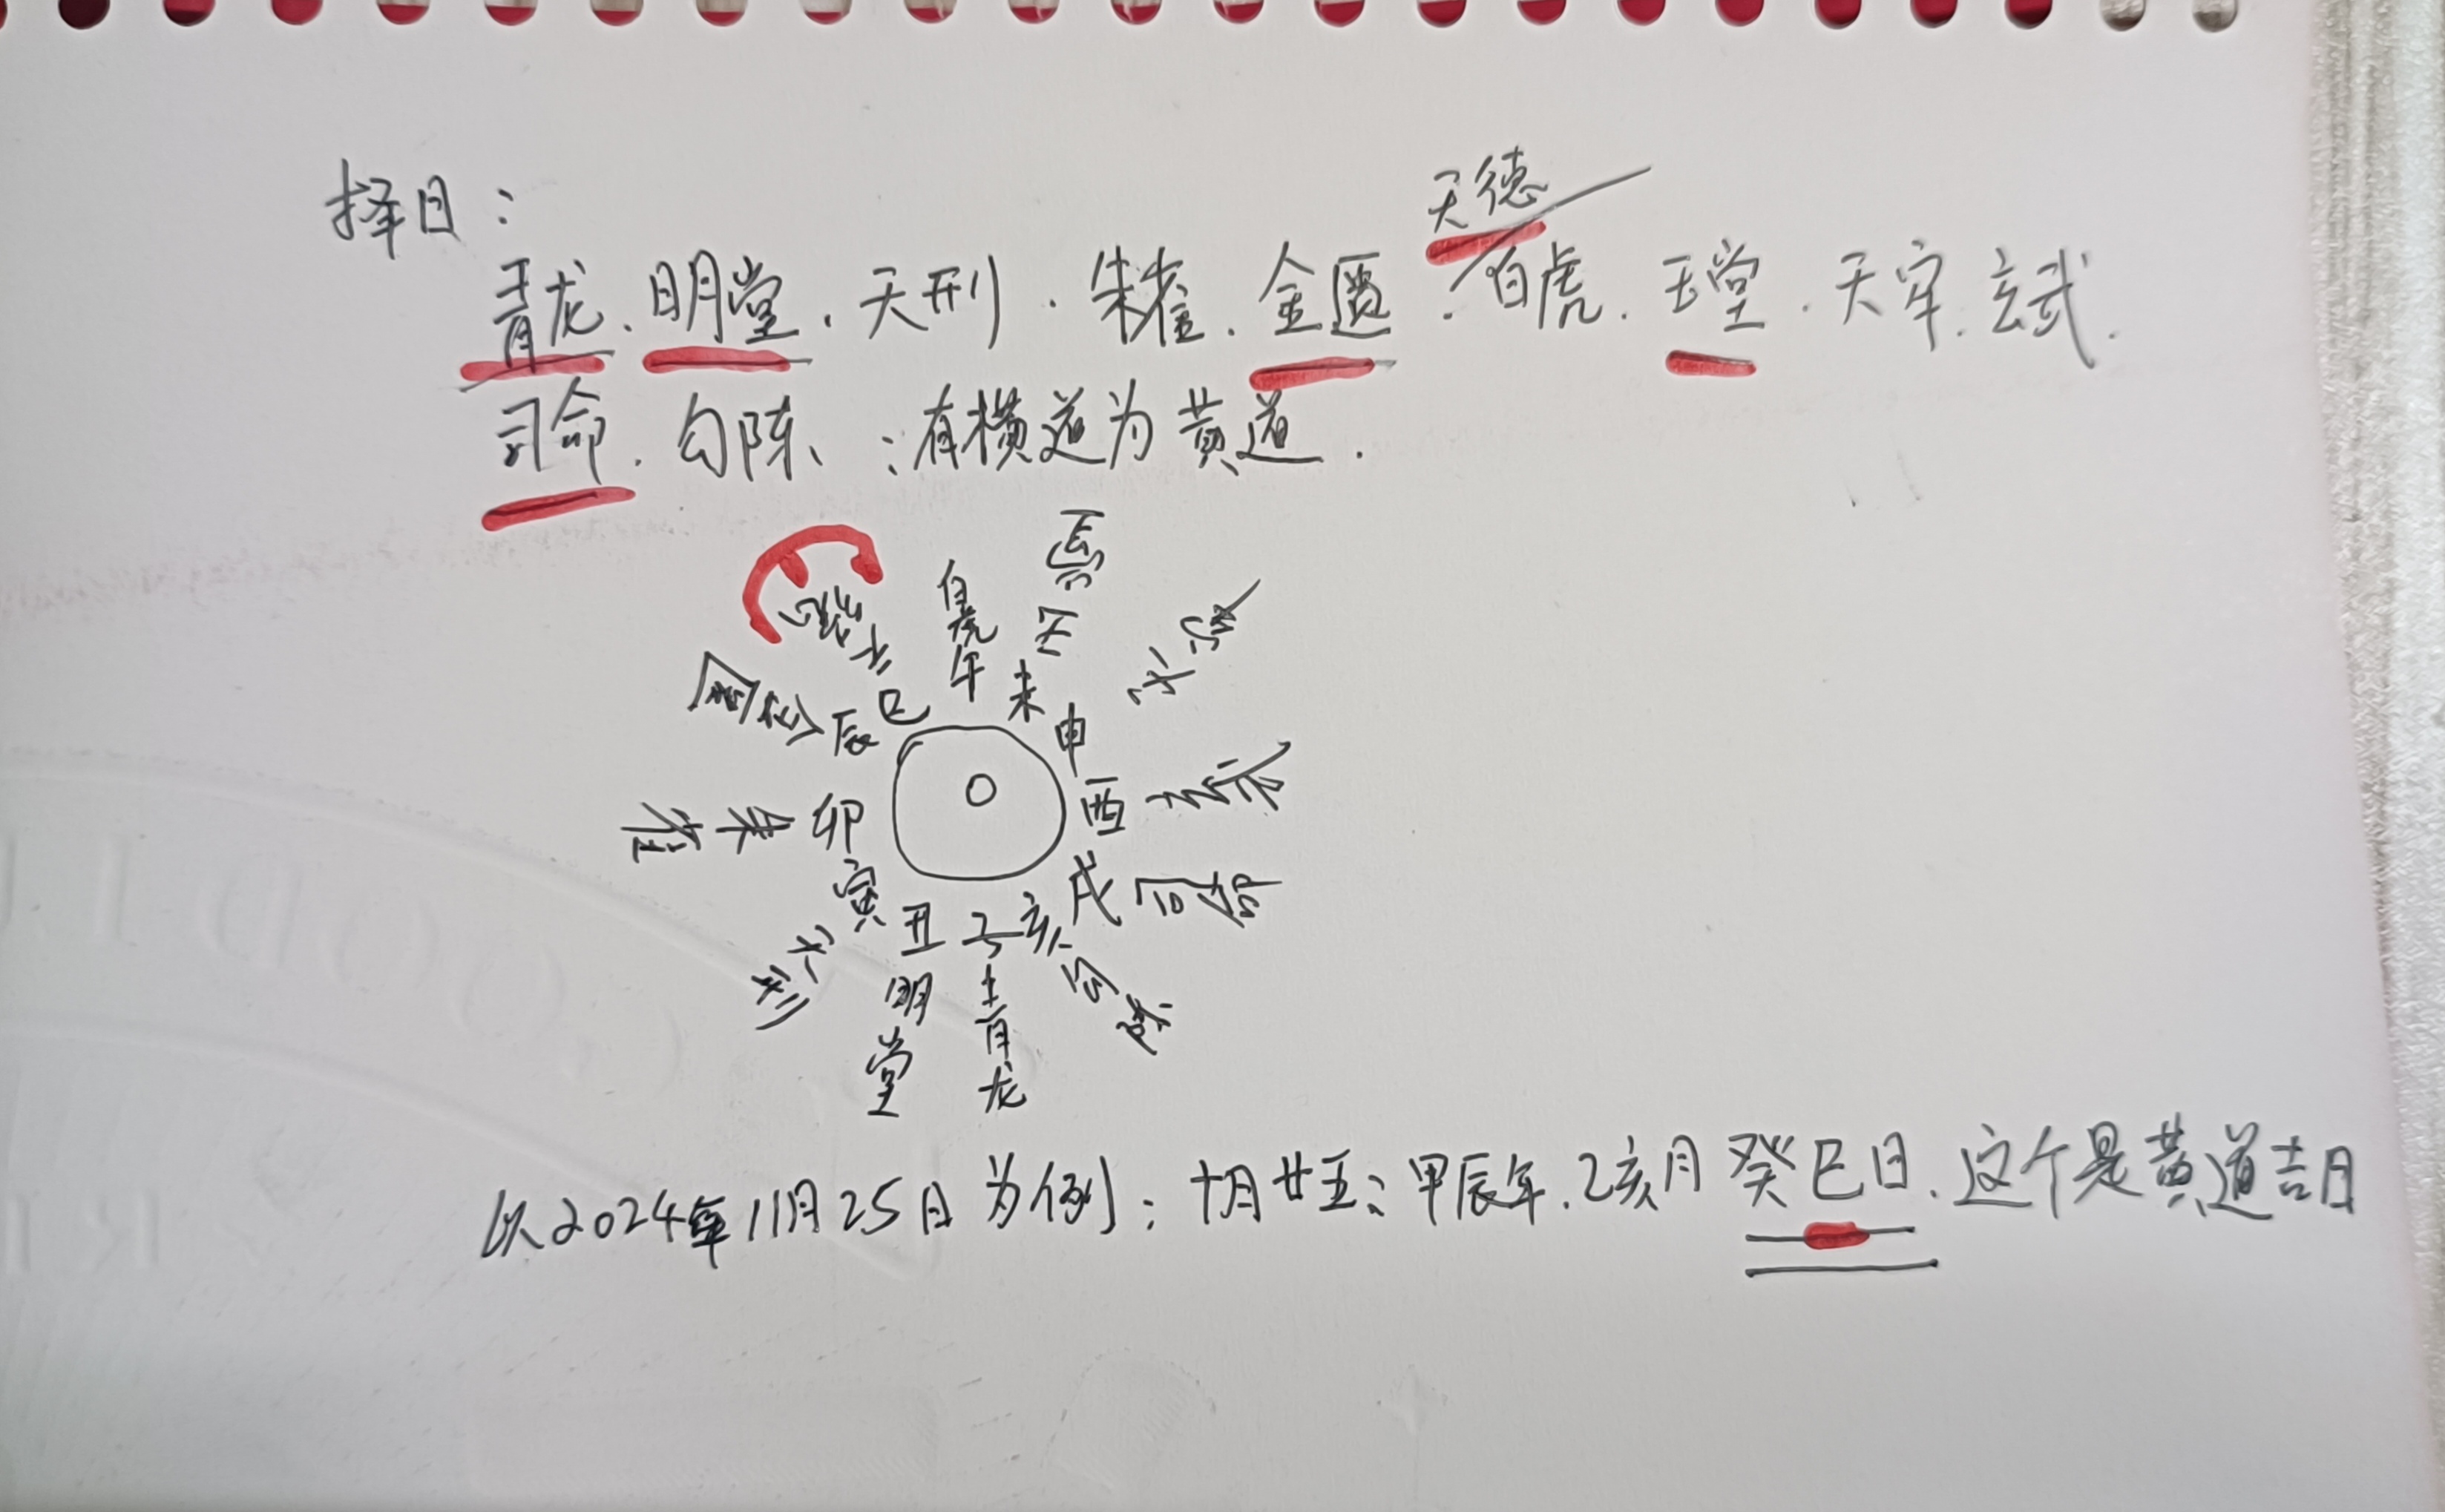 择日：
天德
青龙、明堂、天刑、朱雀、金匮、白虎、玉堂、天牢、玄武、
司命、勾陈、：有横道为黄道.
白虎 午
未
天德 巳
金匮 辰
申 天牢
朱雀 卯
酉 玄武
天刑 寅
戌 司命
明堂 丑
青龙 子
亥 勾陈
以2024年11月25日为例；十月廿五；甲辰年、乙亥月 癸巳日、这个是黄道吉日